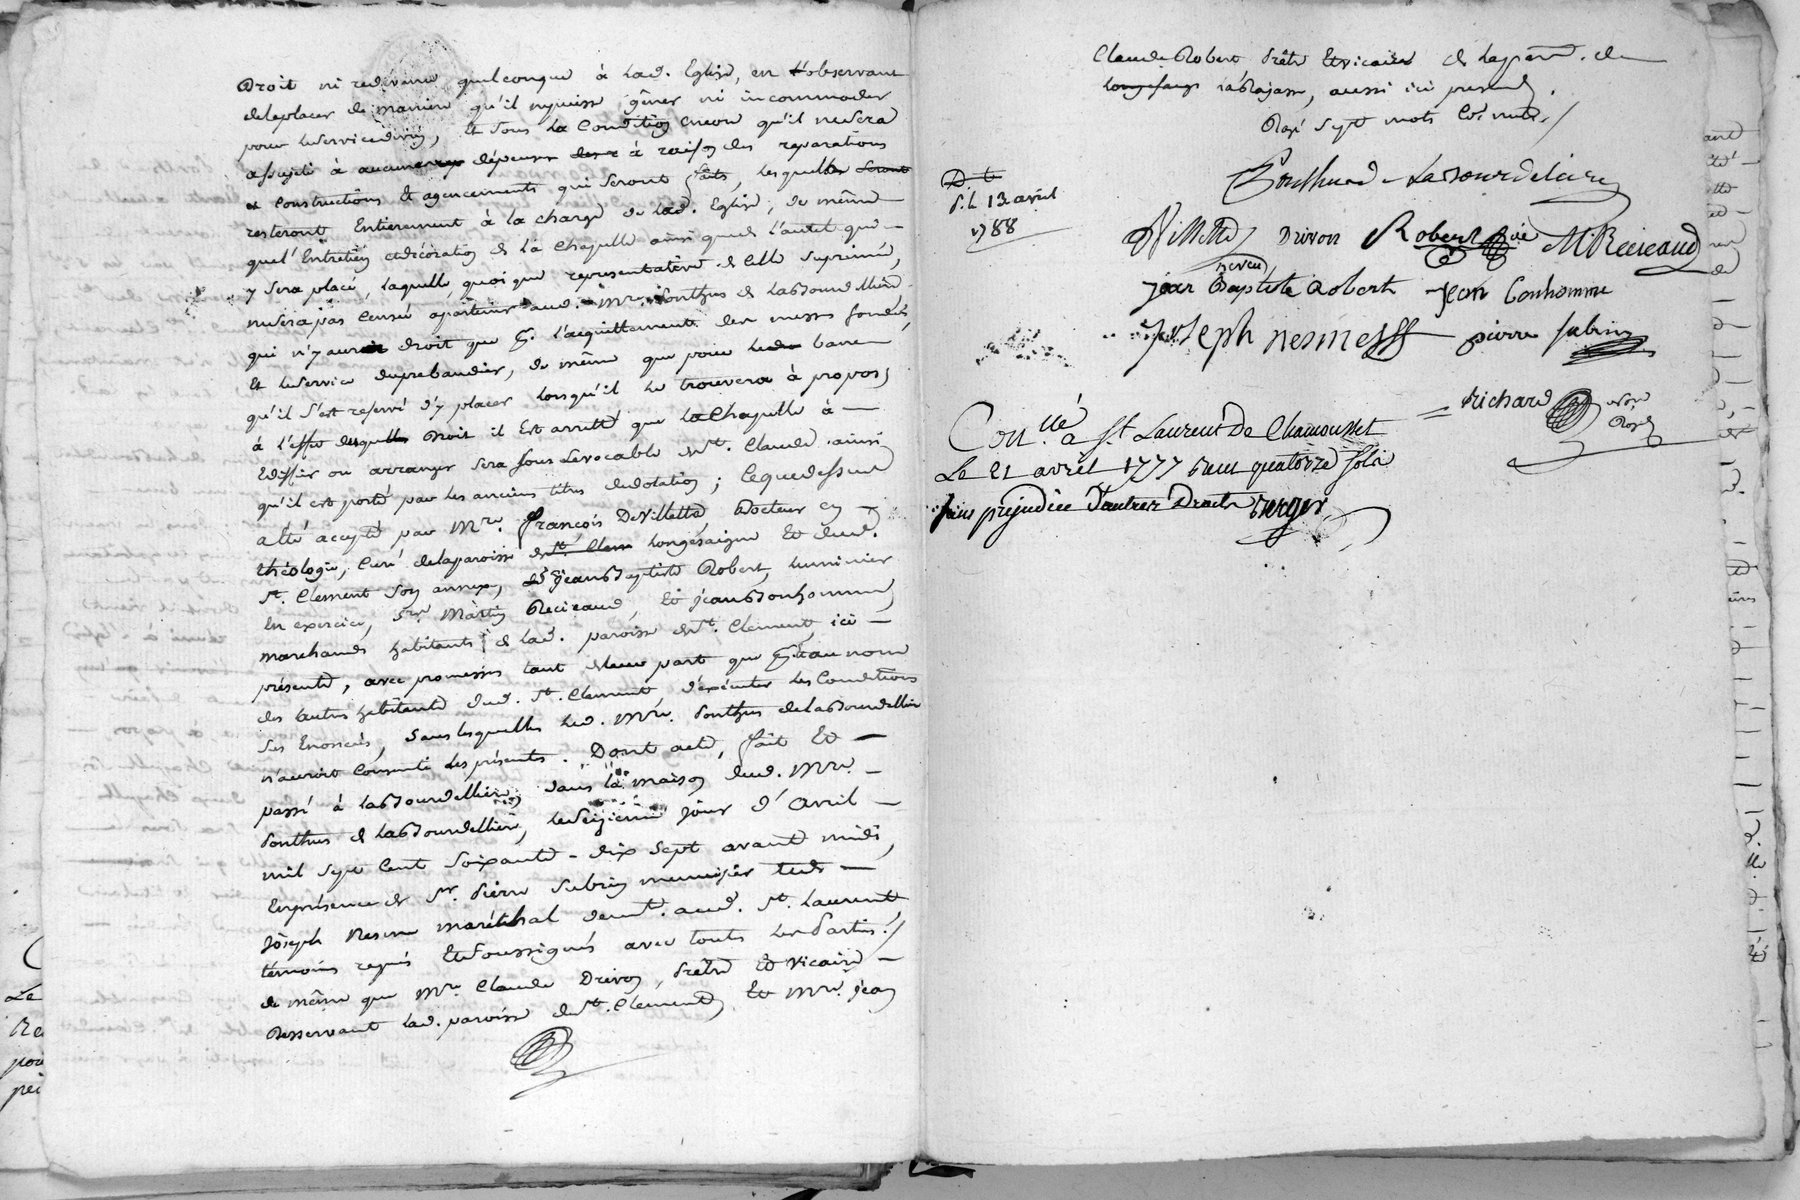 Droit ni redevance quelconque à lad. Eglise, en l'observant
de le placer de maniere qu'il ne puisse gêner ni incommoder
pour le service divin, et sous la Condition encore qu'il ne sera
assujeti à aucune dépense à raison des reparations
Constructions et agencements qui seront faits, lesquelles
resteront Entierement à la charge de lad. Eglise, de même
que l'Entretien et décoration de la Chapelle ainsi que de l'autel qui
y sera placé, laquelle quoique representative de celle suprimée,
ne sera pas Censée apartenir aud. Mre. Ponthus de laBourdelliere
qui n'y aura droit que pr. l'acquittement des messes fondées,
et le service du prebandier, de même que pour le banc
qu'il s'est reservé d'y placer lorsqu'il le trouvera à propos,
à l'effet desquels Droit il Est arretté que la Chapelle à
Ediffier ou arranger sera sous le vocable de St. Claude, ainsi
qu'il est porté par les anciens titres de dotation; Ce que dessus
a été accepté par Mre. françois De Villette Docteur en
théologie, Curé de la paroisse de Longesaigne et dud.
St. Clement son annexe, Jean Baptiste Robert, luminier
En exercice, Sr. Martin Recicaud, et Jean Bonhomme,
marchands habitants de lad. paroisse de St. Clement, ici
présents, avec promesses tant de leur part que pr. et au nom
des autres habitants dud. St. Clement, d'éxécuter les Conditions
Ses Enoncées, sans lesquelles led. Mre. Ponthus de laBourdelliere
n'auroit Consenti les présentes. Dont acte, fait et
passé à laBourdelliere, dans la maison dud. Mre.
Ponthus de laBourdelliere, le seizieme jour d'avril
mil sept Cent soixante-dix sept avant midi,
En présence de Sr. Pierre Subrin menuisier et de
Joseph Nesme maréchal demt. aud. St. Laurent,
témoins requis Et soussignés avec toutes les Parties ./
de même que Mre. Claude Drivon, Prêtre et Vicaire
Desservant lad. paroisse de St. Clement, et Mre. Jean
Claude Robert Prêtre et vicaire de la parr. de
longesaigne, aussi ici present.
Rayé sept mots
D. L.
P. L. 13 avril
1788
Ponthus de La Bourdeliere
DeVillette Drivon Robert vic M Recicaud
neveu
jean Baptiste Robert jean bonhomme
joseph nesme pierre subrin
Richard
Con.llé a St. Laurent De Chamousset
Le 21 avril 1777 recu quatorze sols
sans prejudice d'autres Droits verger